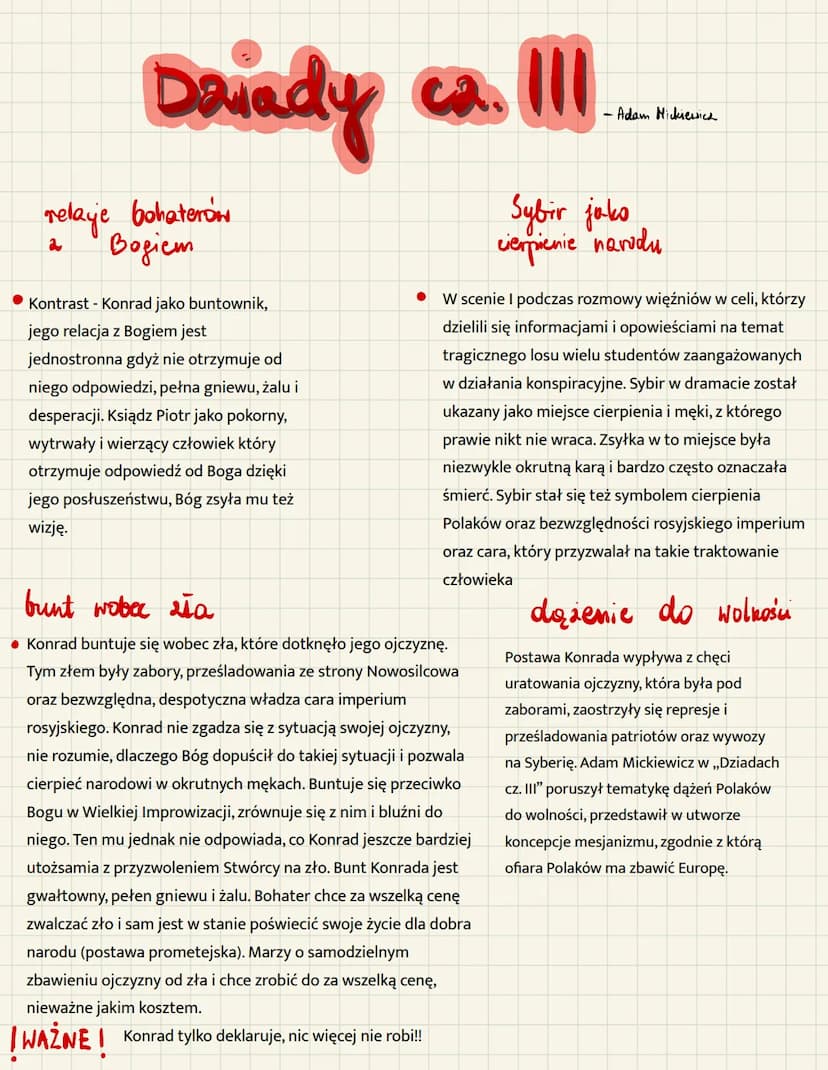 Dziady cz. III
– Adam Mickiewicz
relacje bohaterów
z Bogiem
Kontrast - Konrad jako buntownik,
jego relacja z Bogiem jest
jednostronna gdyż nie otrzymuje od
niego odpowiedzi, pełna gniewu, żalu i
desperacji. Ksiądz Piotr jako pokorny,
wytrwały i wierzący człowiek który
otrzymuje odpowiedź od Boga dzięki
jego posłuszeństwu, Bóg zsyła mu też
wizję.
Sybir jako
cierpienie narodu
W scenie I podczas rozmowy więźniów w celi, którzy
dzielili się informacjami i opowieściami na temat
tragicznego losu wielu studentów zaangażowanych
w działania konspiracyjne. Sybir w dramacie został
ukazany jako miejsce cierpienia i męki, z którego
prawie nikt nie wraca. Zsyłka w to miejsce była
niezwykle okrutną karą i bardzo często oznaczała
śmierć. Sybir stał się też symbolem cierpienia
Polaków oraz bezwzględności rosyjskiego imperium
oraz cara, który przyzwalał na takie traktowanie
człowieka
bunt wobec zła
Konrad buntuje się wobec zła, które dotknęło jego ojczyznę.
Tym złem były zabory, prześladowania ze strony Nowosilcowa
oraz bezwzględna, despotyczna władza cara imperium
rosyjskiego. Konrad nie zgadza się z sytuacją swojej ojczyzny,
nie rozumie, dlaczego Bóg dopuścił do takiej sytuacji i pozwala
cierpieć narodowi w okrutnych mękach. Buntuje się przeciwko
Bogu w Wielkiej Improwizacji, zrównuje się z nim i bluźni do
niego. Ten mu jednak nie odpowiada, co Konrad jeszcze bardziej
utożsamia z przyzwoleniem Stwórcy na zło. Bunt Konrada jest
gwałtowny, pełen gniewu i żalu. Bohater chce za wszelką cenę
zwalczać zło i sam jest w stanie poświecić swoje życie dla dobra
narodu (postawa prometejska). Marzy o samodzielnym
zbawieniu ojczyzny od zła i chce zrobić do za wszelką cenę,
nieważne jakim kosztem.
! WAŻNE ! Konrad tylko deklaruje, nic więcej nie robi!!
dążenie do wolności
Postawa Konrada wypływa z chęci
uratowania ojczyzny, która była pod
zaborami, zaostrzyły się represje i
prześladowania patriotów oraz wywozy
na Syberię. Adam Mickiewicz w „Dziadach
cz. III” poruszył tematykę dążeń Polaków
do wolności, przedstawił w utworze
koncepcje mesjanizmu, zgodnie z którą
ofiara Polaków ma zbawić Europę.